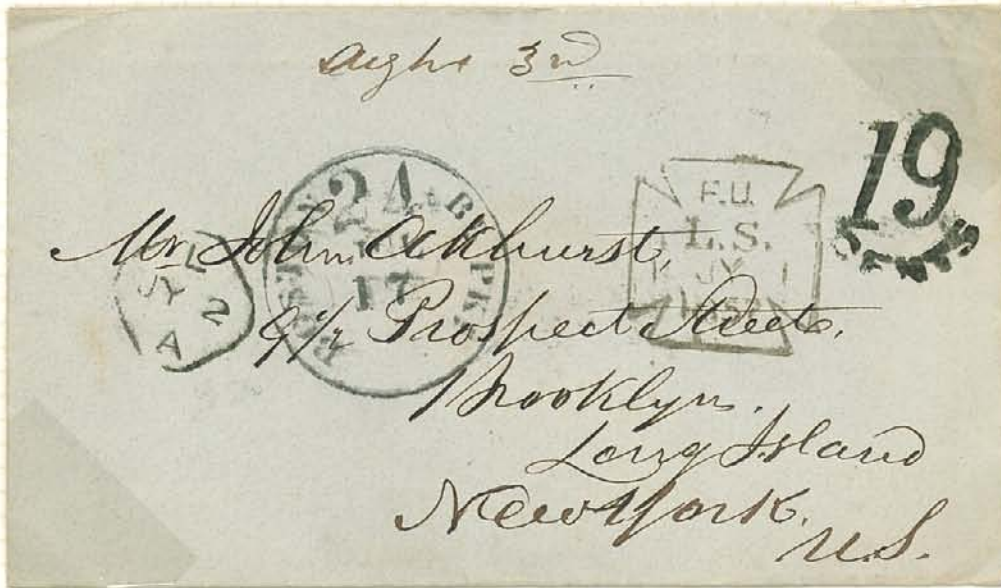 3rd
19
24
BR. PKT.
17
F.U.
L.S.
JY 1
185
JY
A 2
Mr John Akhurst,
9 1/2 Prospect Street,
Brooklyn.
Long Island
New York.
U.S.